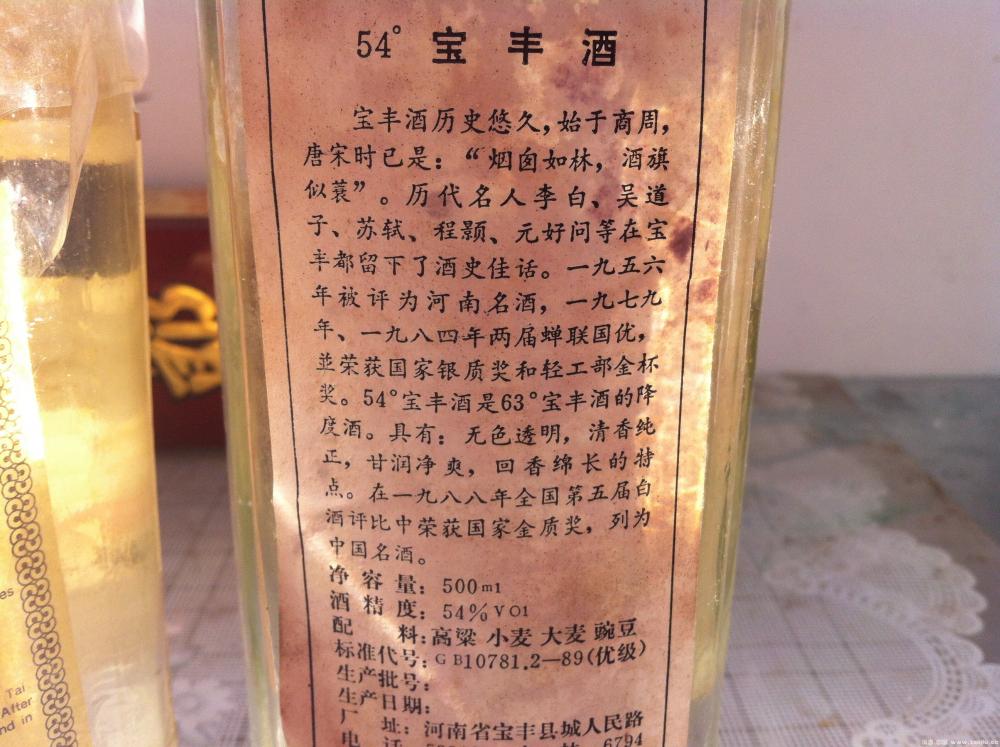 54°宝丰酒
宝丰酒历史悠久，始于商周，
唐宋时已是：“烟囱如林，酒旗
似蓑”。历代名人李白、吴道
子、苏轼、程颢、元好问等在宝
丰都留下了酒史佳话。一九五六
年被评为河南名酒，一九七九
年、一九八四年两届蝉联国优，
並荣获国家银质奖和轻工部金杯
奖。54°宝丰酒是63°宝丰酒的降
度酒。具有：无色透明，清香纯
正，甘润净爽，回香绵长的特
点。在一九八八年全国第五届白
酒评比中荣获国家金质奖，列为
中国名酒。
净容量：500ml
酒精度：54%VOl
配料：高粱 小麦 大麦 豌豆
标准代号：GB10781.2—89(优级)
生产批号：
生产日期：
厂址：河南省宝丰县城人民路
电话 6794
es
Tai
After
nd in